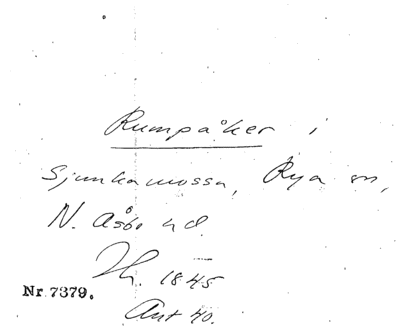 Rumpåker i
Sjunkamossa, Rya sn,
N. Åsbo hd.
Th. 1845
Nr 7379.
Ant 40.